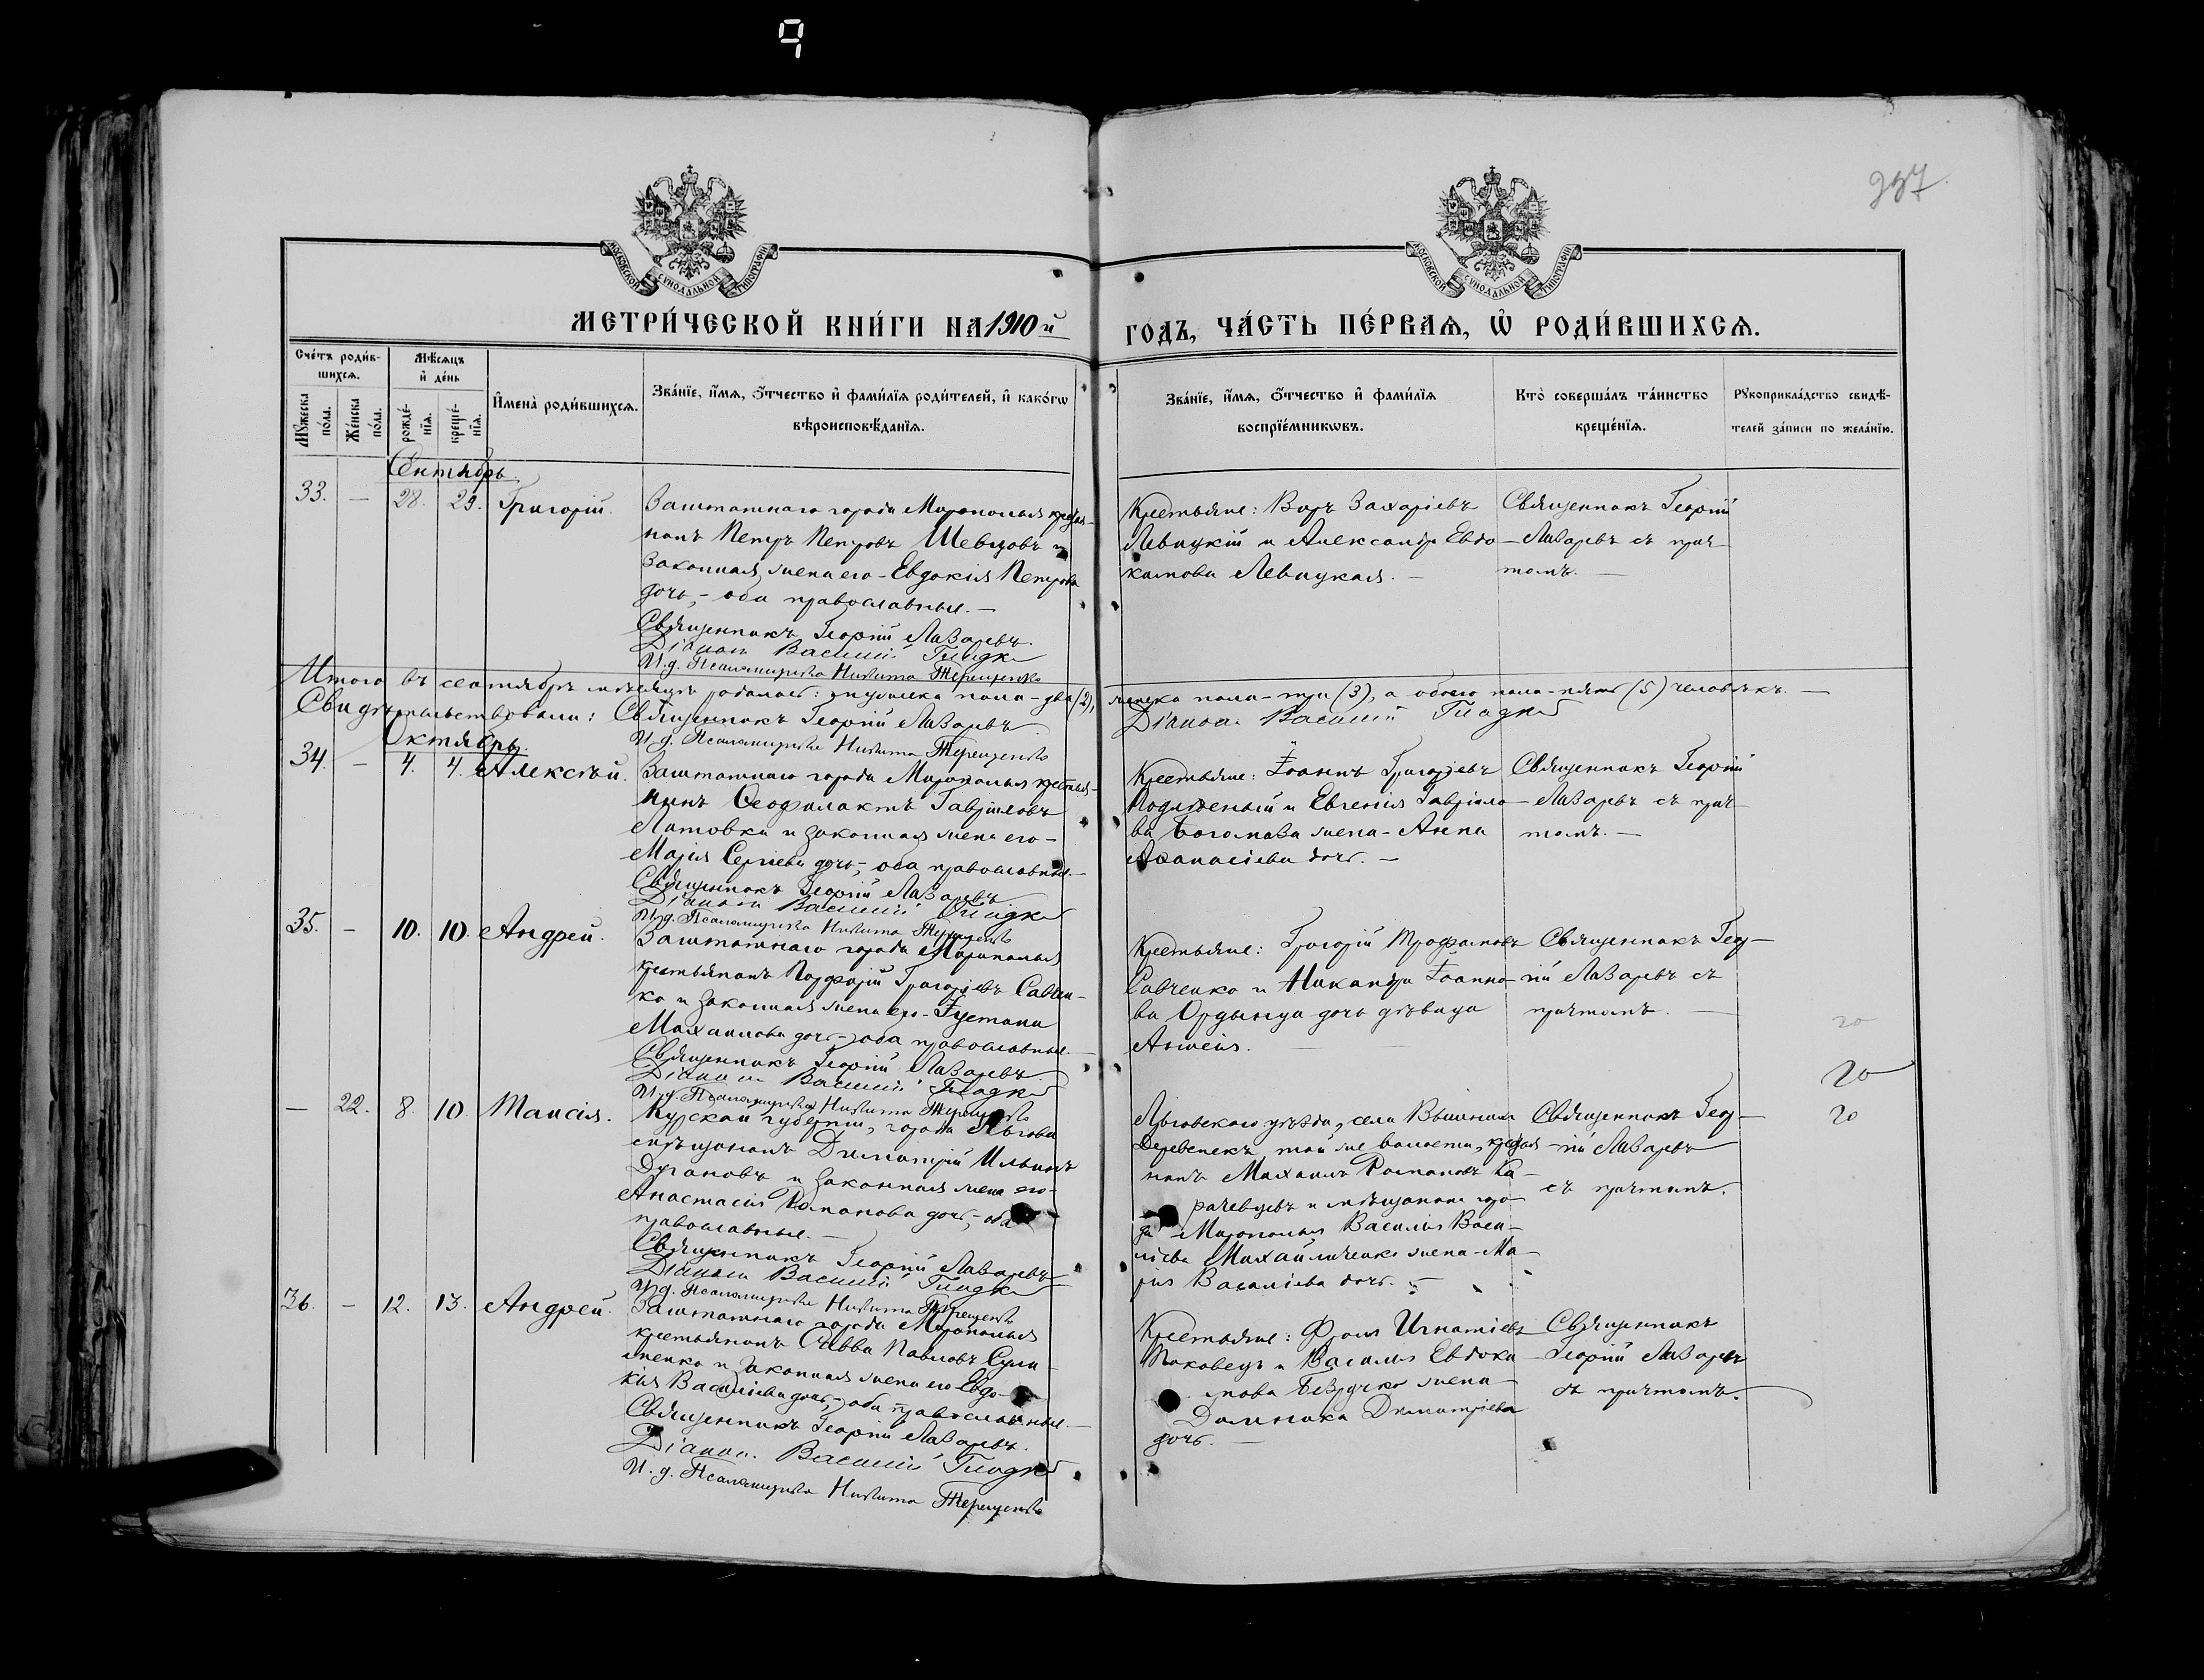 937.
МОСКОВСКОЙ СѴНОДАЛЬНОЙ ТИПОГРАФІИ
МОСКОВСКОЙ СѴНОДАЛЬНОЙ ТИПОГРАФІИ
МЕТРИ́ЧЕСКОЙ КНИ́ГИ НА 1910й ГОДЪ, ЧА́СТЬ ПЕ́РВАѦ, Ѡ҆ РОДИ́ВШИХСѦ.
Сче́тъ роди́в-
шихсѧ.
Мꙋ́жеска по́ла.
Же́нска по́ла.
Мѣ́сѧцъ
и҆ де́нь
рожде́-
нїѧ.
креще́-
нїѧ.
И҆мена̀ роди́вшихсѧ.
Зва́нїе, и҆́мѧ, ѻ҆́тчество и҆ фами́лїѧ роди́телей, и҆ како́гѡ
вѣроисповѣ́данїѧ.
Зва́нїе, и҆́мѧ, ѻ҆́тчество и҆ фами́лїѧ
воспрїе́мникѡвъ.
Кто̀ соверша́лъ та́инство
креще́нїѧ.
Рꙋкоприкла́дство свидѣ́-
телей за́писи по жела́нїю.
Сентябрь.
33. — 28. 29. Григорій.
Заштатнаго города Мирополья крестья-
нинъ Петръ Петровъ Шевцовъ и
законная жена его - Евдокія Петрова
дочь, - оба православные. —
Священникъ Георгій Лазаревъ.
Діаконъ Василій Гладкій
И. д. Псаломщика Никита Терещенко
Крестьяне: Виръ Захаріевъ
Левицкій и Александра Евдо-
кимова Левицкая. —
Священникъ Георгій
Лазаревъ съ прич-
томъ. —
Итого въ сентябрѣ мѣсяцѣ родилось: мужеска пола - два (2), женска пола - три (3), а обоего пола - пять (5) человѣкъ. —
Свидѣтельствовали: Священникъ Георгій Лазаревъ
Діаконъ Василій Гладкій
И. д. Псаломщика Никита Терещенко
Октябрь.
34. — 4. 4. Алексѣй.
Заштатнаго города Мирополья крестья-
нинъ Ѳеофилактъ Гавріиловъ
Литовка и законная жена его -
Марія Сергіева дочь, - оба православные. —
Священникъ Георгій Лазаревъ
Діаконъ Василій Гладкій
И. д. Псаломщика Никита Терещенко
Крестьяне: Іоаннъ Григорьевъ
и Евгенія Гавріило-
ва жена - Анна
Аѳанасіева дочь. —
Священникъ Георгій
Лазаревъ съ прич-
томъ. —
35. — 10. 10. Андрей.
Заштатнаго города Мирополья
крестьянинъ Порфирій Григорьевъ Савчен-
ко и законная жена его - Іустина
Михаилова дочь - оба православные. —
Священникъ Георгій Лазаревъ
Діаконъ Василій Гладкій
И. д. Псаломщика Никита Терещенко
Крестьяне: Григорій Трофимовъ
Савченко и Никандра Іоанно-
ва Ордынца дочь дѣвица
Анисія. —
Священникъ Геор-
гій Лазаревъ съ
причтомъ. —
20
20
20
— 22. 8. 10. Таисія.
Курской губерніи, города Льгова
мѣщанинъ Димитрій Ильинъ
Дугановъ и законная жена его -
Анастасія Романова дочь, - оба
православные. —
Священникъ Георгій Лазаревъ
Діаконъ Василій Гладкій
И. д. Псаломщика Никита Терещенко
Льговскаго уѣзда, села Вышнихъ
Деревенекъ, той же волости, крестья-
нинъ Михаилъ Романовъ Ка-
рачевцевъ и мѣщанина горо-
да Мирополья Василія Васи-
ліева Михайличенко жена - Ма-
рія Василіева дочь. —
Священникъ Геор-
гій Лазаревъ
съ причтомъ.
36. — 12. 13. Андрей.
Заштатнаго города Мирополья
крестьянинъ Савва Павловъ Сули-
менко и законная жена его Евдо-
кія Василіева дочь, - оба православные. —
Священникъ Георгій Лазаревъ.
Діаконъ Василій Гладкій
И. д. Псаломщика Никита Терещенко
Крестьяне: Фролъ Игнатіевъ
и Василія Евдоки-
мова Безручко жена -
Домника Димитріева
дочь. —
Священникъ
Георгій Лазаревъ
съ причтомъ.